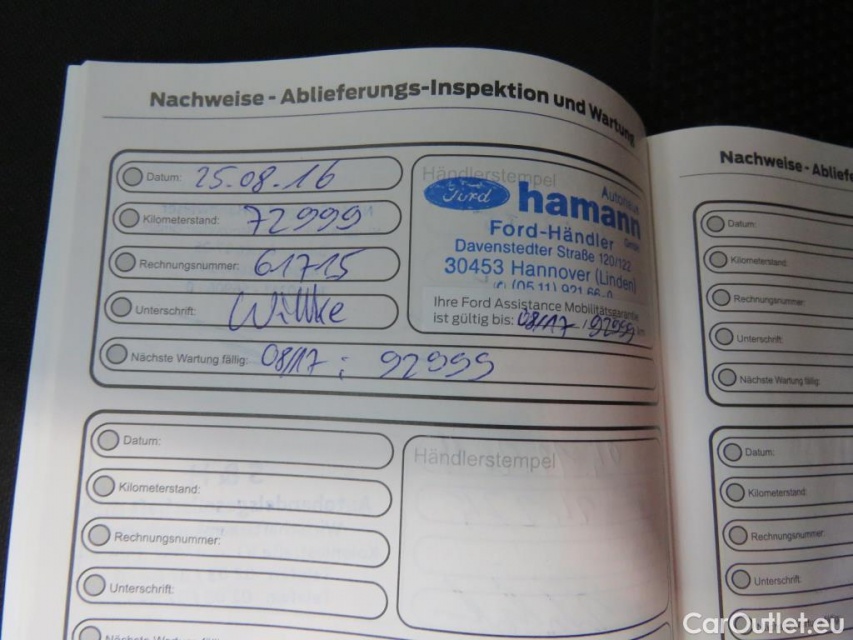 Nachweise - Ablieferungs-Inspektion und Wartung
Datum: 25.08.16
Kilometerstand: 72999
Rechnungsnummer: 61715
Unterschrift: Willke
Nächste Wartung fällig: 08/17 : 92999
Händlerstempel
Ford
Autohaus
hamann
GmbH
Ford-Händler
Davenstedter Straße 120/122
30453 Hannover (Linden)
(05 11) 921 66-0
Ihre Ford Assistance Mobilitätsgarantie
ist gültig bis: 08/17 : 92999 km
Datum:
Kilometerstand:
Rechnungsnummer:
Unterschrift:
Nächste Wartung fällig:
Händlerstempel
Nachweise - Abliefe
Datum:
Kilometerstand:
Rechnungsnummer:
Unterschrift:
Nächste Wartung fällig:
Datum:
Kilometerstand:
Rechnungsnummer:
Unterschrift:
CarOutlet.eu